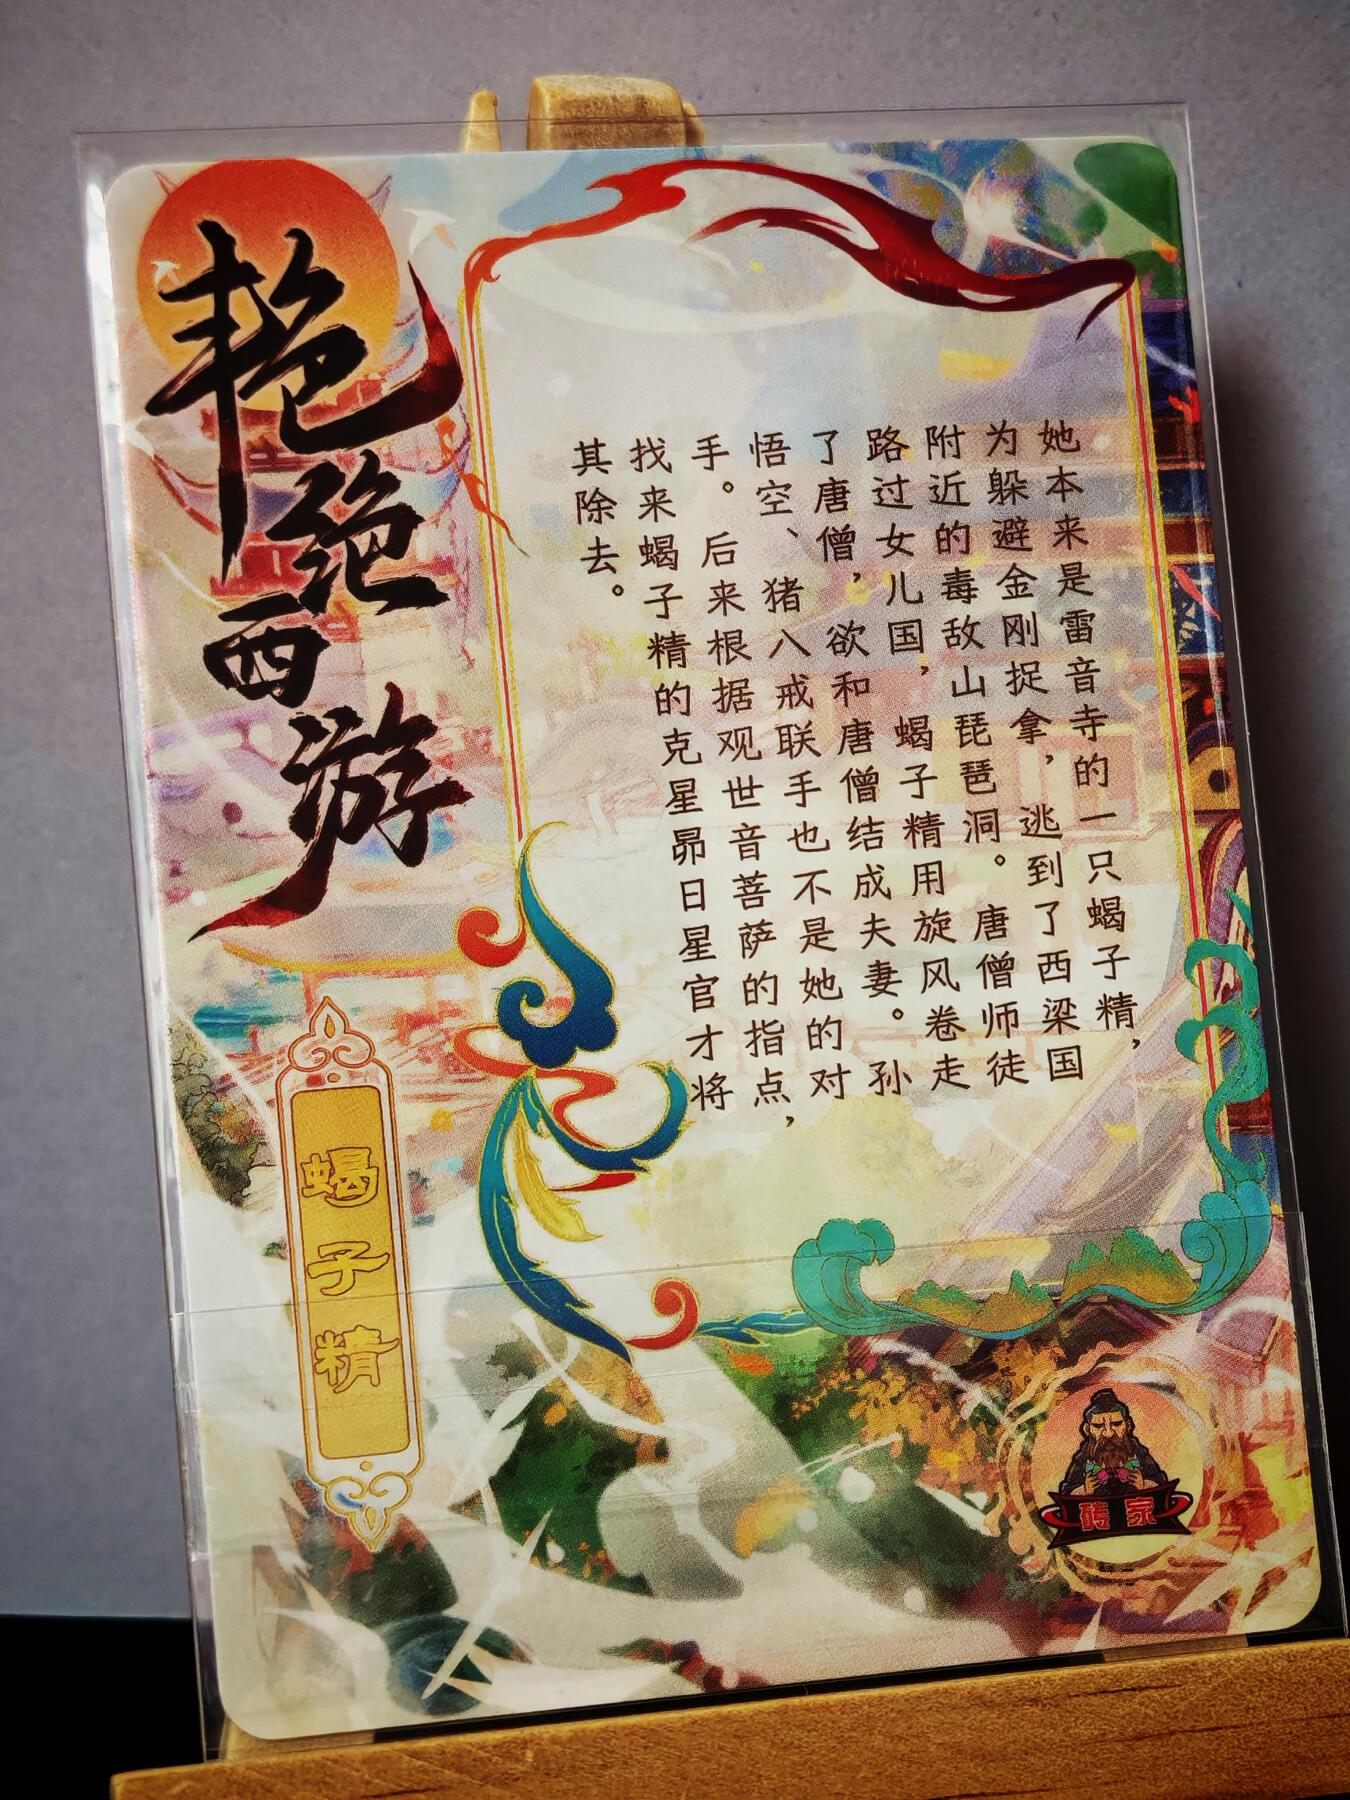 艳绝西游
她本来是雷音寺的一只蝎子精，
为躲避金刚捉拿，逃到了西梁国
附近的毒敌山琵琶洞。唐僧师徒
路过女儿国，蝎子精用旋风卷走
了唐僧，欲和唐僧结成夫妻。孙
悟空、猪八戒联手也不是她的对
手。后来根据观世音菩萨的指点，
找来蝎子精的克星昴日星官才将
其除去。
蝎子精
砖家